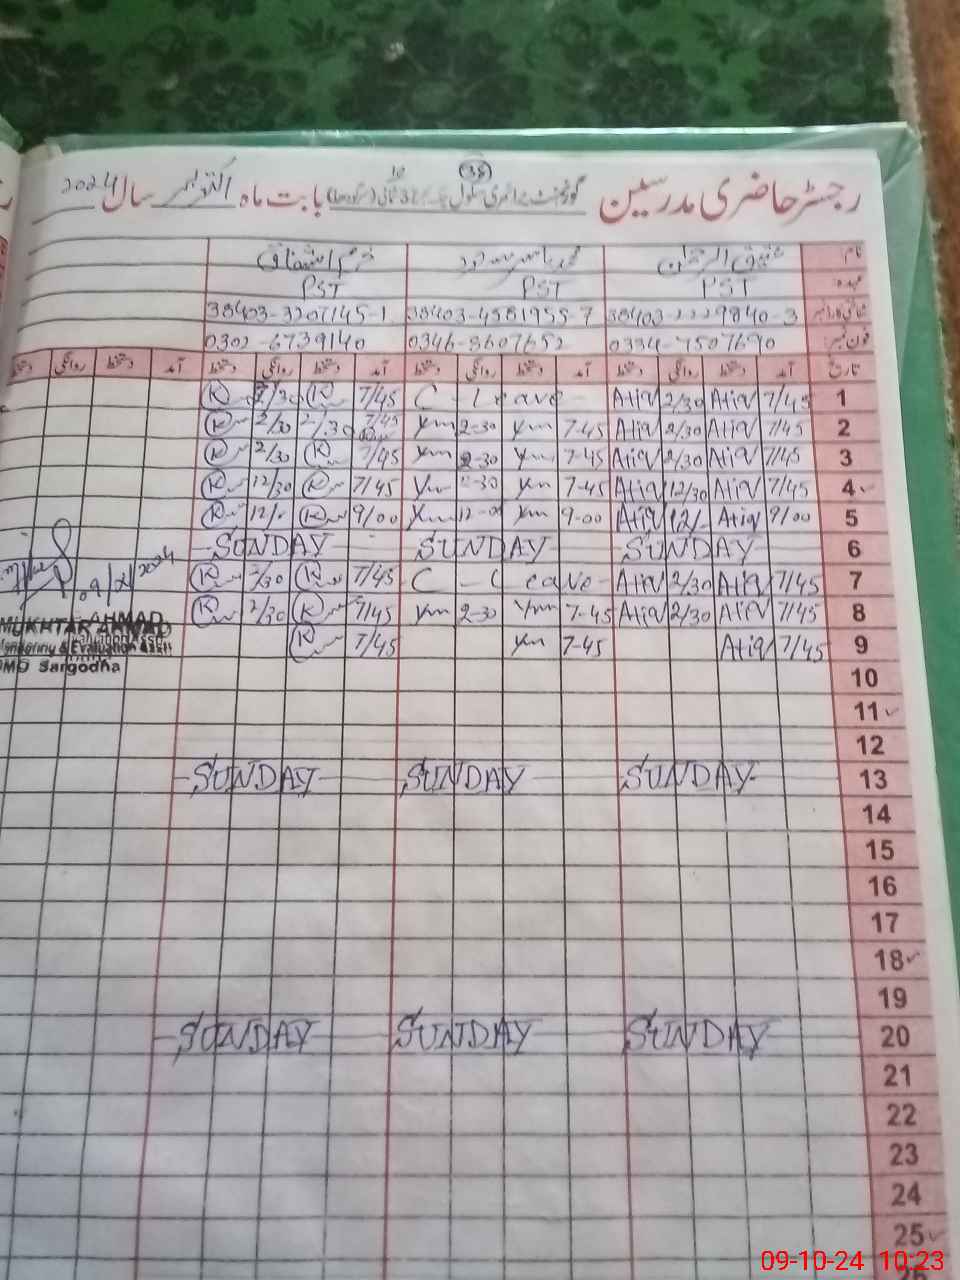 38
رجسٹر حاضری مدرسین گورنمنٹ پرائمری سکول بابت ماہ اکتوبر سال 2024
نام عتیق الرحمن محمد یاسر خرم اشفاق
عہدہ PST PST PST
شناختی کارڈ نمبر 38403-2229840-3 38403-4581955-7 38403-3207145-1
فون نمبر 0334-7507690 0346-8607652 0302-6739140
تاریخ آمد دستخط روانگی دستخط آمد دستخط روانگی دستخط آمد دستخط روانگی دستخط آمد دستخط روانگی دستخط
1 7/45 Atiq 2/30 Atiq C-Leave 7/45 K 2/30 K
2 7/45 Atiq 2/30 Atiq 7-45 Ym 2-30 Ym 7/45 2/30 2/30 K
3 7/45 Atiq 2/30 Atiq 7-45 Ym 2-30 Ym 7/45 K 2/30 K
4 7/45 Atiq 12/30 Atiq 7-45 Ym Ym 7/45 K 12/30 K
5 9/00 Atiq 12/- Atiq 9-00 Ym 12-00 Ym 9/00 K K
6 SUNDAY SUNDAY SUNDAY
7 7/45 Atiq 2/30 Atiq C-Leave 7/45 K 2/30 K
8 7/45 Atiq 2/30 Atiq 7-45 Ym 2-30 Ym 7/45 K 2/30 K
9 7/45 Atiq 7-45 Ym 7/45 K
10
11
12
13 SUNDAY SUNDAY SUNDAY
14
15
16
17
18
19
20 SUNDAY SUNDAY SUNDAY
21
22
23
24
25
2024
MUKHTAR AHMAD
Evaluation
DMO Sargodha
09-10-24 10:23